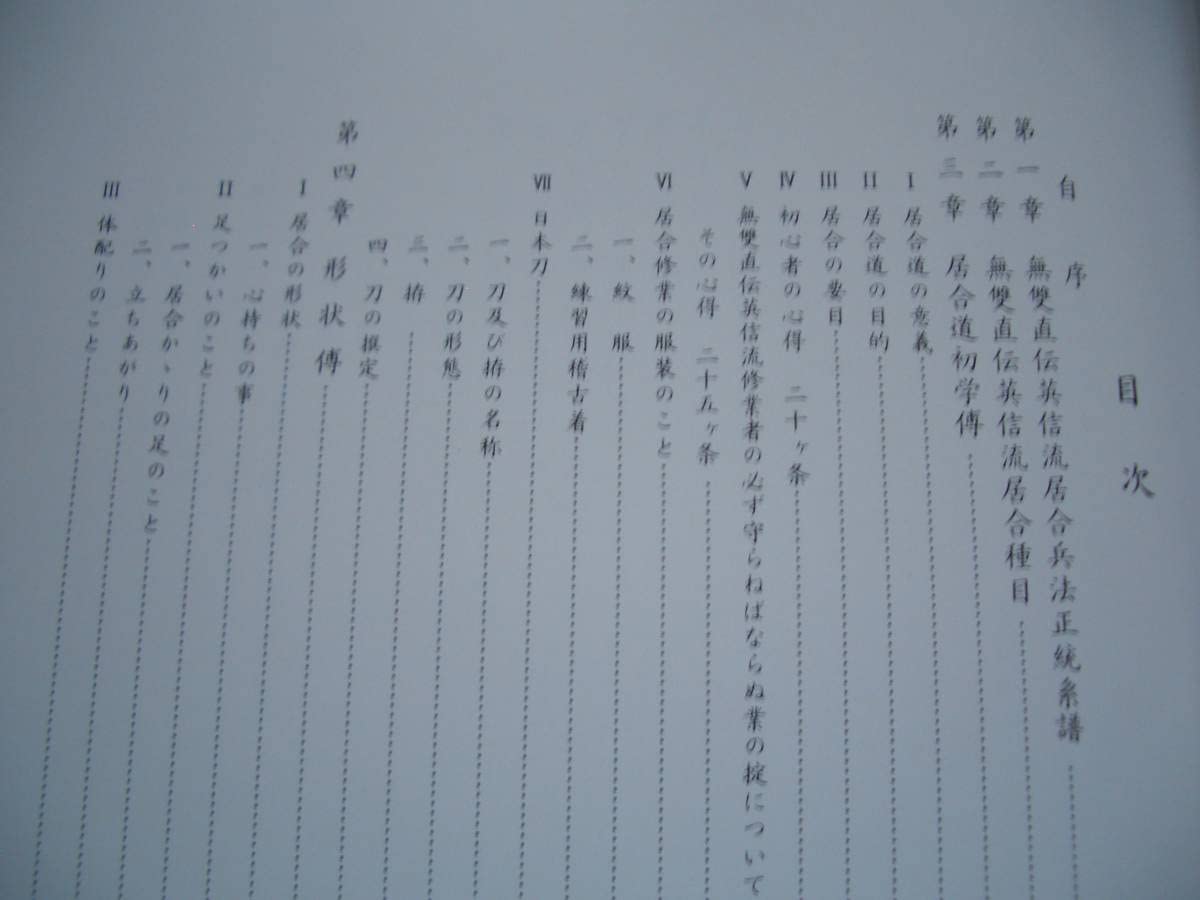 目次
自序
第一章 無雙直伝英信流居合兵法正統系譜
第二章 無雙直伝英信流居合種目
第三章 居合道初学傳
I 居合道の意義
II 居合道の目的
III 居合の要目
IV 初心者の心得 二十ヶ条
V 無雙直伝英信流修業者の必ず守らねばならぬ業の掟について
その心得 二十五ヶ条
VI 居合修業の服装のこと
一、紋服
二、練習用稽古着
VII 日本刀
一、刀及び拵の名称
二、刀の形態
三、拵
四、刀の撰定
第四章 形状傳
I 居合の形状
一、心持ちの事
II 足つかいのこと
一、居合かゝりの足のこと
二、立ちあがり
III 体配りのこと